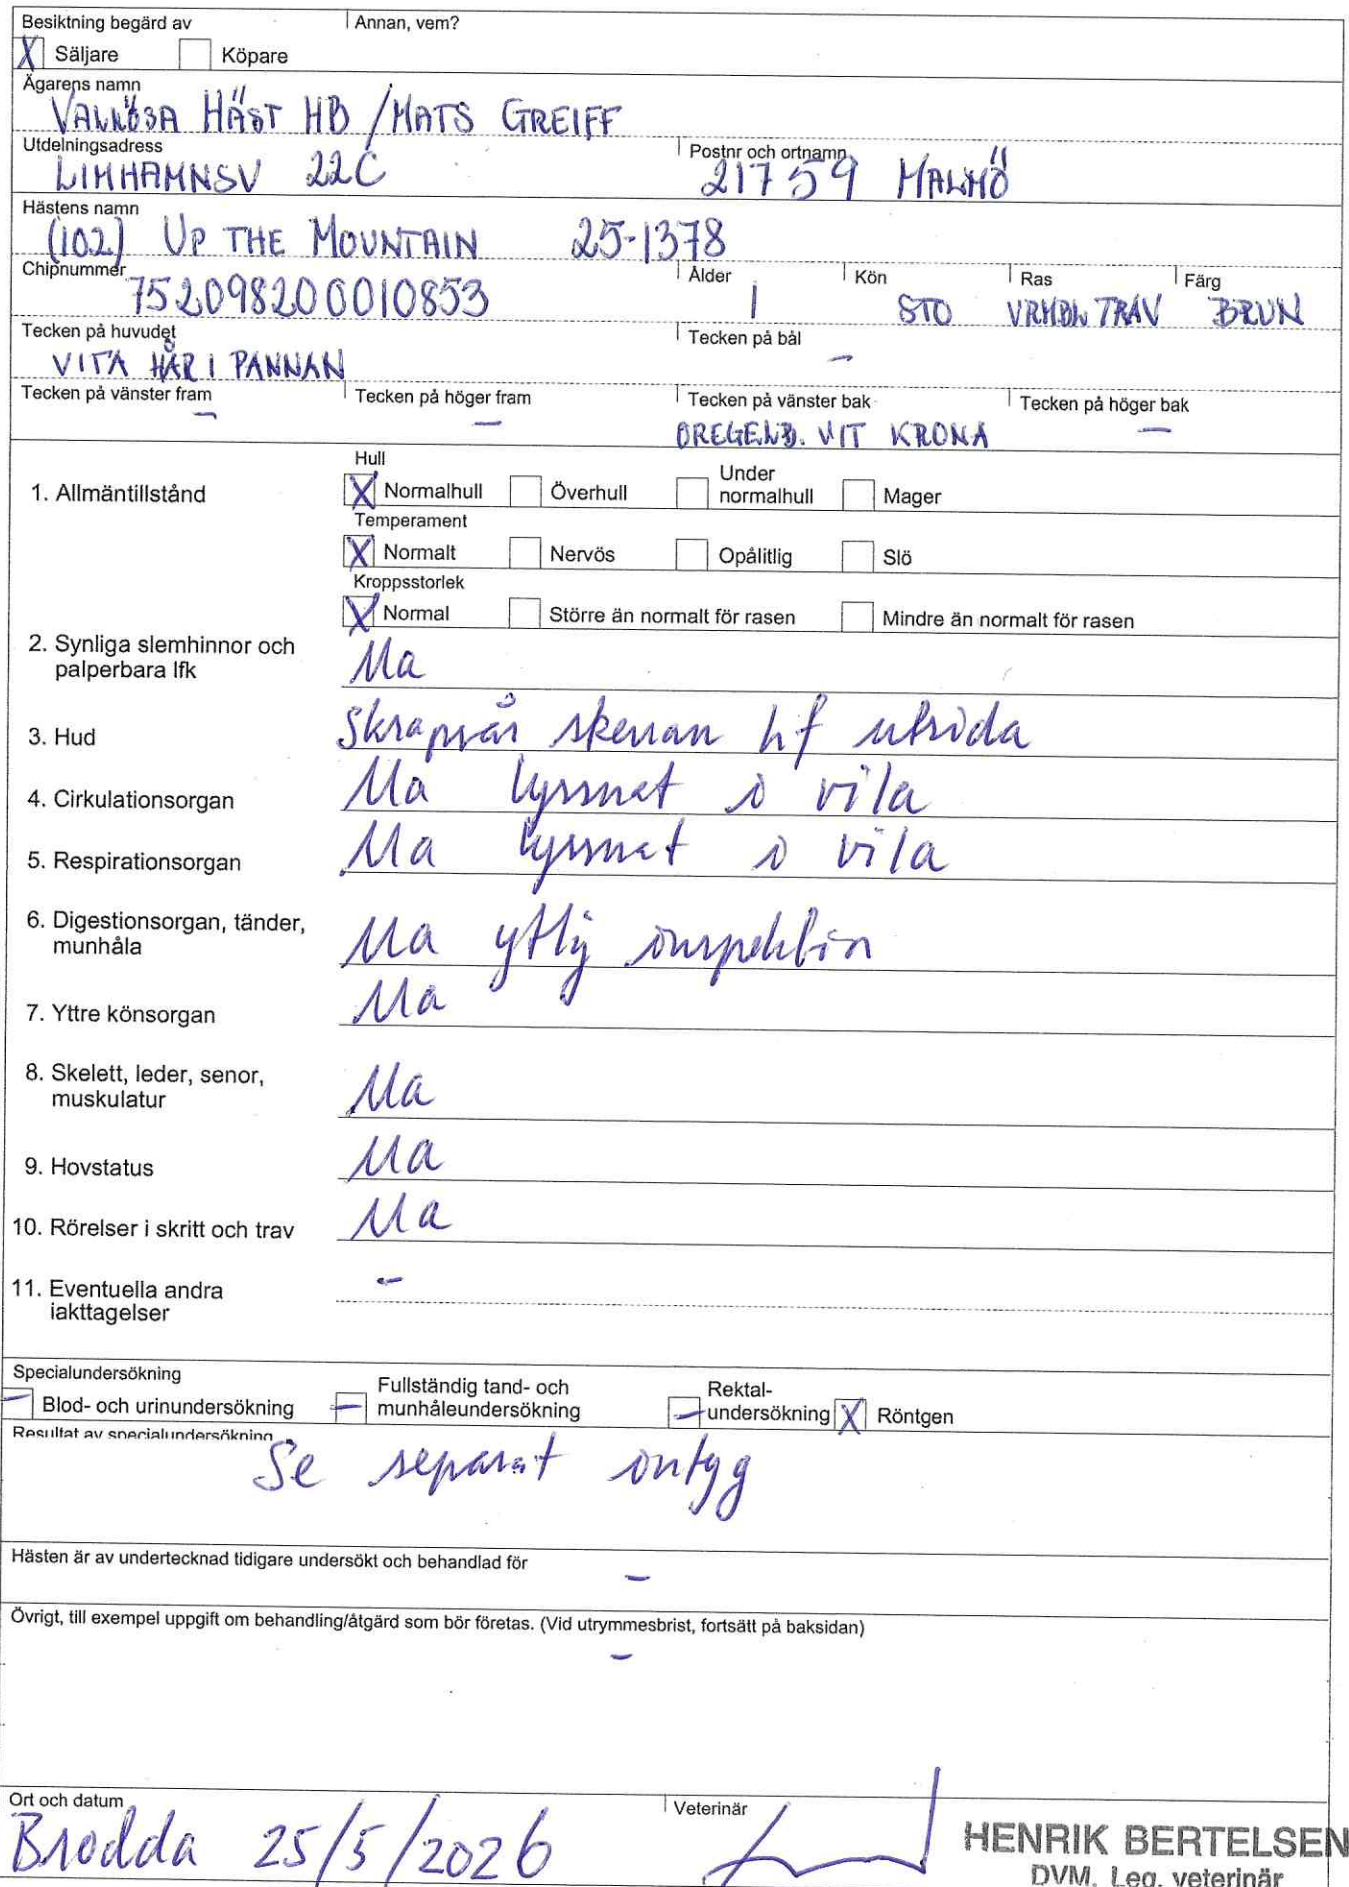 Besiktning begärd av Annan, vem?
X Säljare Köpare
Ägarens namn
VALLÖSA HÄST HB / MATS GREIFF
Utdelningsadress Postnr och ortnamn
LIMHAMNSV 22C 21759 MALMÖ
Hästens namn
(102) UP THE MOUNTAIN 25-1378
Chipnummer Ålder Kön Ras Färg
752098200010853 1 STO VRMBL TRAV BRUN
Tecken på huvudet Tecken på bål
VITA HÅR I PANNAN –
Tecken på vänster fram Tecken på höger fram Tecken på vänster bak Tecken på höger bak
– – OREGELB. VIT KRONA –
Hull
1. Allmäntillstånd X Normalhull Överhull Under normalhull Mager
Temperament
X Normalt Nervös Opålitlig Slö
Kroppsstorlek
X Normal Större än normalt för rasen Mindre än normalt för rasen
2. Synliga slemhinnor och
palperbara lfk Ua
3. Hud Skrapsår skenan hf utsida
4. Cirkulationsorgan Ua lyssnat i vila
5. Respirationsorgan Ua lyssnat i vila
6. Digestionsorgan, tänder,
munhåla Ua ytlig inspektion
7. Yttre könsorgan Ua
8. Skelett, leder, senor,
muskulatur Ua
9. Hovstatus Ua
10. Rörelser i skritt och trav Ua
11. Eventuella andra –
iakttagelser
Specialundersökning
– Blod- och urinundersökning – Fullständig tand- och munhåleundersökning – Rektal-undersökning X Röntgen
Resultat av specialundersökning
Se separat intyg
Hästen är av undertecknad tidigare undersökt och behandlad för
–
Övrigt, till exempel uppgift om behandling/åtgärd som bör företas. (Vid utrymmesbrist, fortsätt på baksidan)
–
Ort och datum Veterinär
Brodda 25/5/2026
HENRIK BERTELSEN
DVM. Leg. veterinär